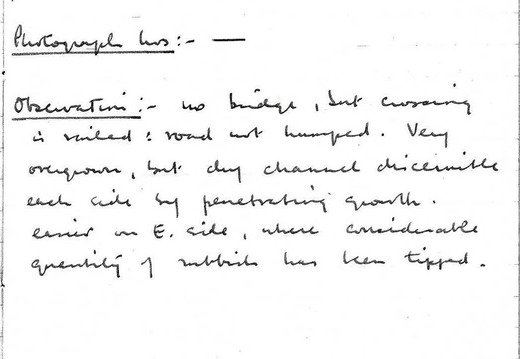 Photograph Nos :- —
Observation :- no bridge, but crossing
is railed : road not humped. Very
overgrown, but dry channel discernible
each side by penetrating growth.
easier on E. side, where considerable
quantity of rubbish has been tipped.